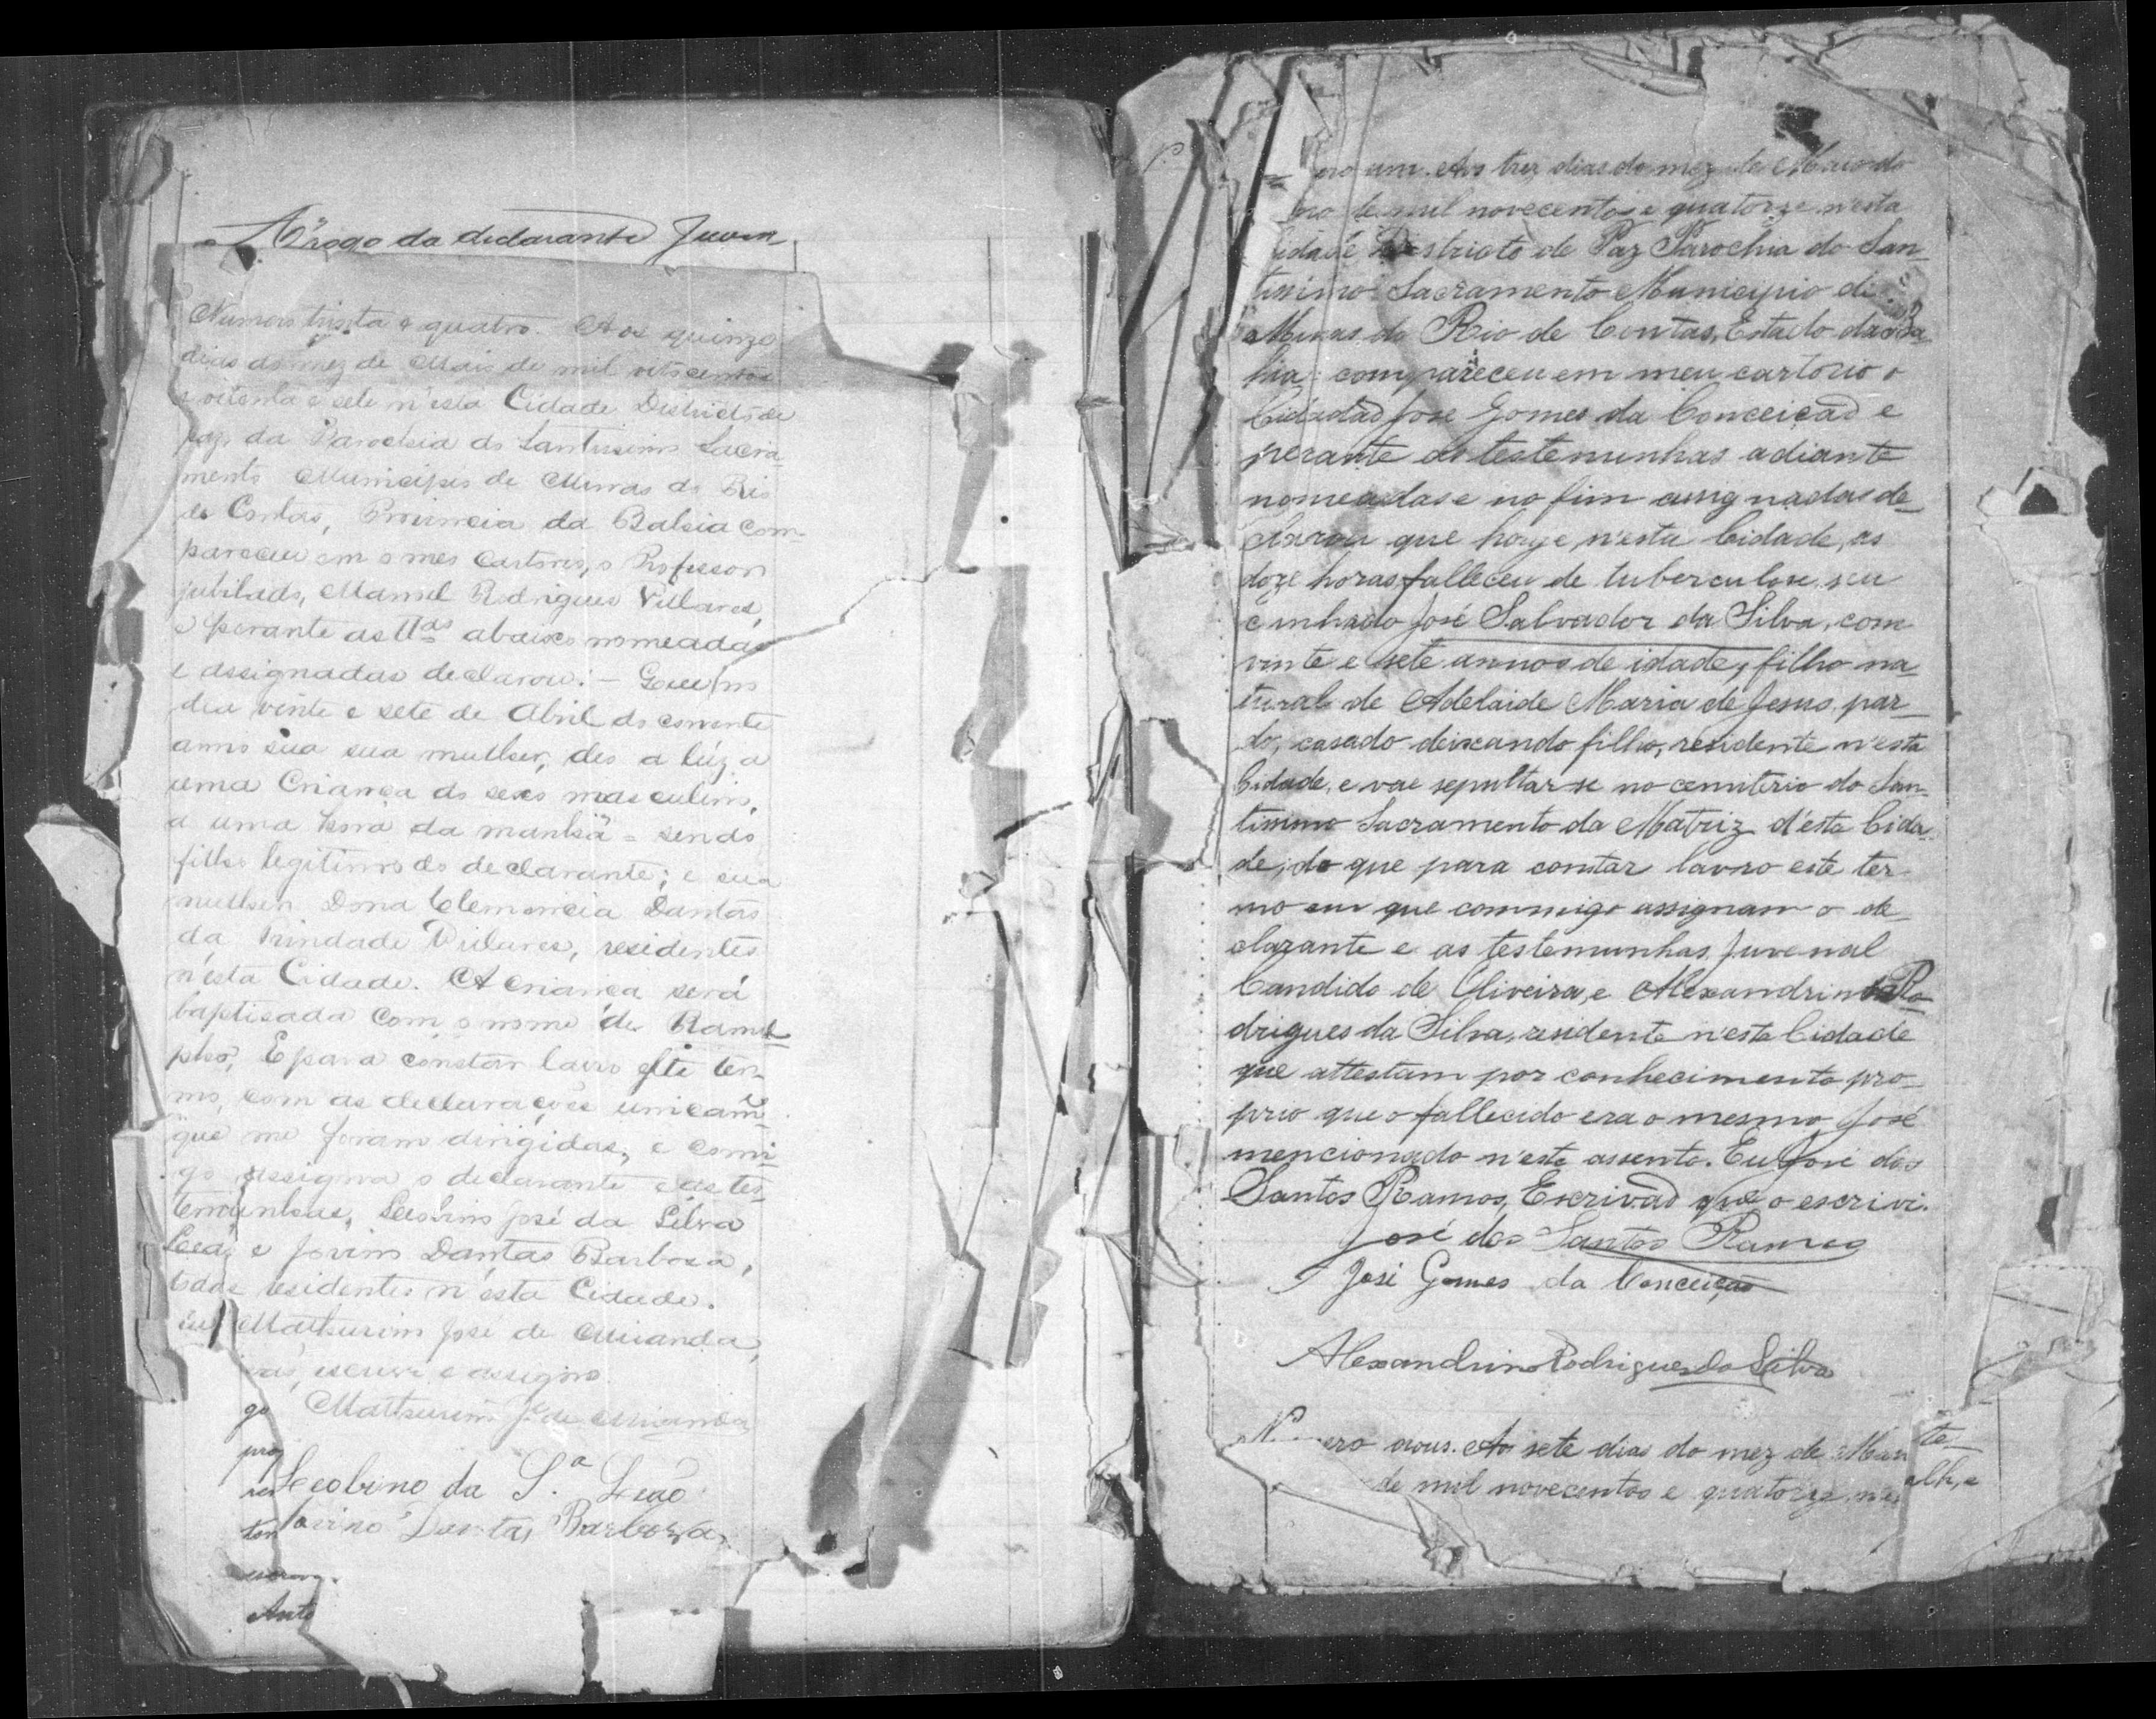 A rogo da declarante Juven
Numero trinta e quatro. Aos quinze
dias do mez de Maio de mil oitocentos
e oitenta e sete n'esta Cidade Districto de
paz da Parochia do Santissimo Sacra-
mento Municipio de Minas do Rio
de Contas, Provincia da Bahia com-
pareceu em o meu Cartorio, o Professor
jubilado, Manoel Rodrigues Villares,
e perante as ttas abaixo nomeadas
e assignadas declarou: - Que no
dia vinte e sete de Abril do corrente
anno sua sua mulher, deo a lúz a
uma Criança do sexo masculino,
a uma hora da manhã = sendo
filho legitimo do declarante; e sua
mulher Dona Clemencia Dantas
da Trindade Villares, residentes
n'esta Cidade. A Criança será
baptisada com o nome de
pho, E para constar lavro este ter-
mo, com as declarações unicam.e
que me foram dirigidas, e comi-
go assigna o declarante e as tes-
temunhas, Leobino José da Silva
Leão e Jovino Dantas Barbosa,
todos residentes n'esta Cidade.
Eu Mathurino José de Miranda,
escrevi e assigno.
go Mathurino J.e de Miranda
Leobino da S.a Leão
ten Jovino Dantas Barboza
Anto
ero um. Aos tres dias do mez de Maio do
no de mil novecentos e quatorze n'esta
idade Districto de Paz Parochia do San-
tissimo Sacramento Municipio de
Minas do Rio de Contas, Estado da Ba-
hia: compareceu em meu cartorio o
Cidadão José Gomes da Conceição e
perante as testemunhas adiante
nomeadas e no fim assignadas de-
clarou que hoje, n'esta Cidade, as
doze horas falleceu de tuberculose seu
cunhado José Salvador da Silva, com
vinte e sete annos de idade, filho na-
tural de Adelaide Maria de Jesus, par-
do, casado deixando filho, residente n'esta
Cidade, e vae sepultar-se no cemiterio do San-
tissimo Sacramento da Matriz d'esta Cida-
de; do que para constar lavro este ter-
mo em que commigo assignam o de-
clarante e as testemunhas, Juvenal
Candido de Oliveira, e Alexandrino Ro-
drigues da Silva, residente n'esta Cidade
que attestam por conhecimento pro-
prio que o fallecido era o mesmo José
mencionado n'este assento. Eu José dos
Santos Ramos, Escrivão que o escrivi.
José dos Santos Ramos
José Gomes da Conceição
Alexandrino Rodrigues da Silva
N ero dous. Ao sete dias do mez de Mai te-
de mil novecentos e quatorze, n'es